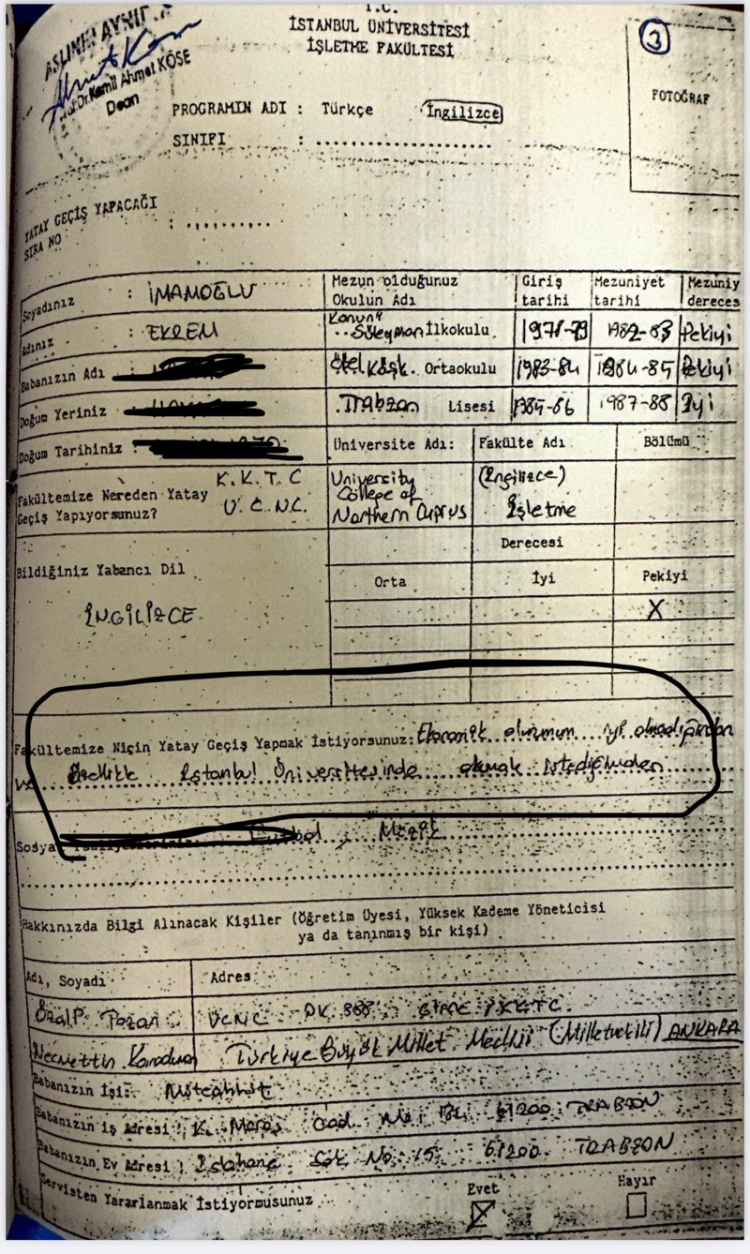 T.C.
İSTANBUL ÜNİVERSİTESİ
İŞLETME FAKÜLTESİ
ASLININ AYNIDIR
Prof.Dr.Kamil Ahmet KÖSE
Dean
3
FOTOĞRAF
PROGRAMIN ADI : Türkçe İngilizce
SINIFI : ....................
YATAY GEÇİŞ YAPACAĞI
SIRA NO : ..........
Soyadınız : İMAMOĞLU
Adınız : EKREM
Babanızın Adı
Doğum Yeriniz
Doğum Tarihiniz :
Mezun olduğunuz Okulun Adı Giriş tarihi Mezuniyet tarihi Mezuniy dereces
Kanuni Süleyman İlkokulu 1978-79 1982-83 Pekiyi
Özel Köşk. Ortaokulu 1983-84 1984-85 Pekiyi
Trabzon Lisesi 1985-86 1987-88 İyi
Üniversite Adı: Fakülte Adı Bölümü
Fakültemize Nereden Yatay Geçiş Yapıyorsunuz? K.K.T.C U.C.N.C.
University College of Northern Cyprus
(İngilizce) İşletme
Derecesi
Bildiğiniz Yabancı Dil Orta İyi Pekiyi
İNGİLİZCE X
Fakültemize Niçin Yatay Geçiş Yapmak İstiyorsunuz: Ekonomik durumum iyi olmadığından
ve Özellikle İstanbul Üniversitesinde okumak istediğimden
Sosyal Faaliyetleriniz: Futbol, Müzik
Hakkınızda Bilgi Alınacak Kişiler (Öğretim Üyesi, Yüksek Kademe Yöneticisi
ya da tanınmış bir kişi)
Adı, Soyadı Adres
UCNC PK 388 Girne / KKTC.
Necmettin Karaduman Türkiye Büyük Millet Meclisi (Milletvekili) ANKARA
Babanızın İşi: Müteahhit
Babanızın iş Adresi : K. Maraş Cad. No: 61200 TRABZON
Babanızın Ev Adresi : Sok No: 15 61200 TRABZON
Servisten Yararlanmak İstiyormusunuz Evet Hayır